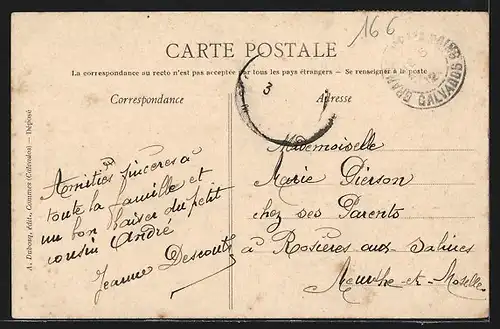 166
CARTE POSTALE
La correspondance au recto n'est pas acceptée par tous les pays étrangers. — Se renseigner à la poste
Correspondance
Adresse
3
CALVADOS
A. Dubosq, édit., Commes (Calvados) — Déposé
Amitiés sincères à
toute la famille et
un bon baiser du petit
cousin André
Jeanne Descouts
Mademoiselle
Marie Pierson
chez ses Parents
à Rosières aux Salines
Meurthe-et-Moselle